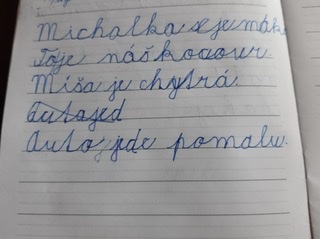 Michalka se je mák
To je náš kocour
Miša je chytrá.
Auto jed
Auto jede pomalu.